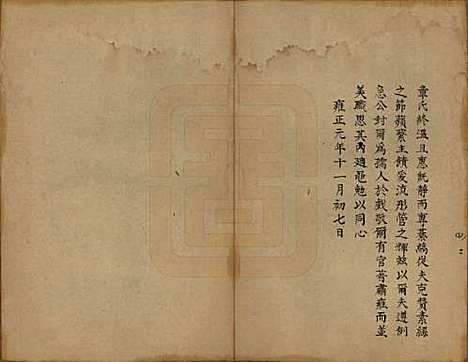 章氏終溫且惠既靜而專綦縞從夫克贊素絲
之節蘋蘩主饋爰流彤管之輝玆以爾夫遵例
急公封爾為孺人於戲敬爾有官著肅雍而並
美職思其內迪黽勉以同心
雍正元年十一月初七日